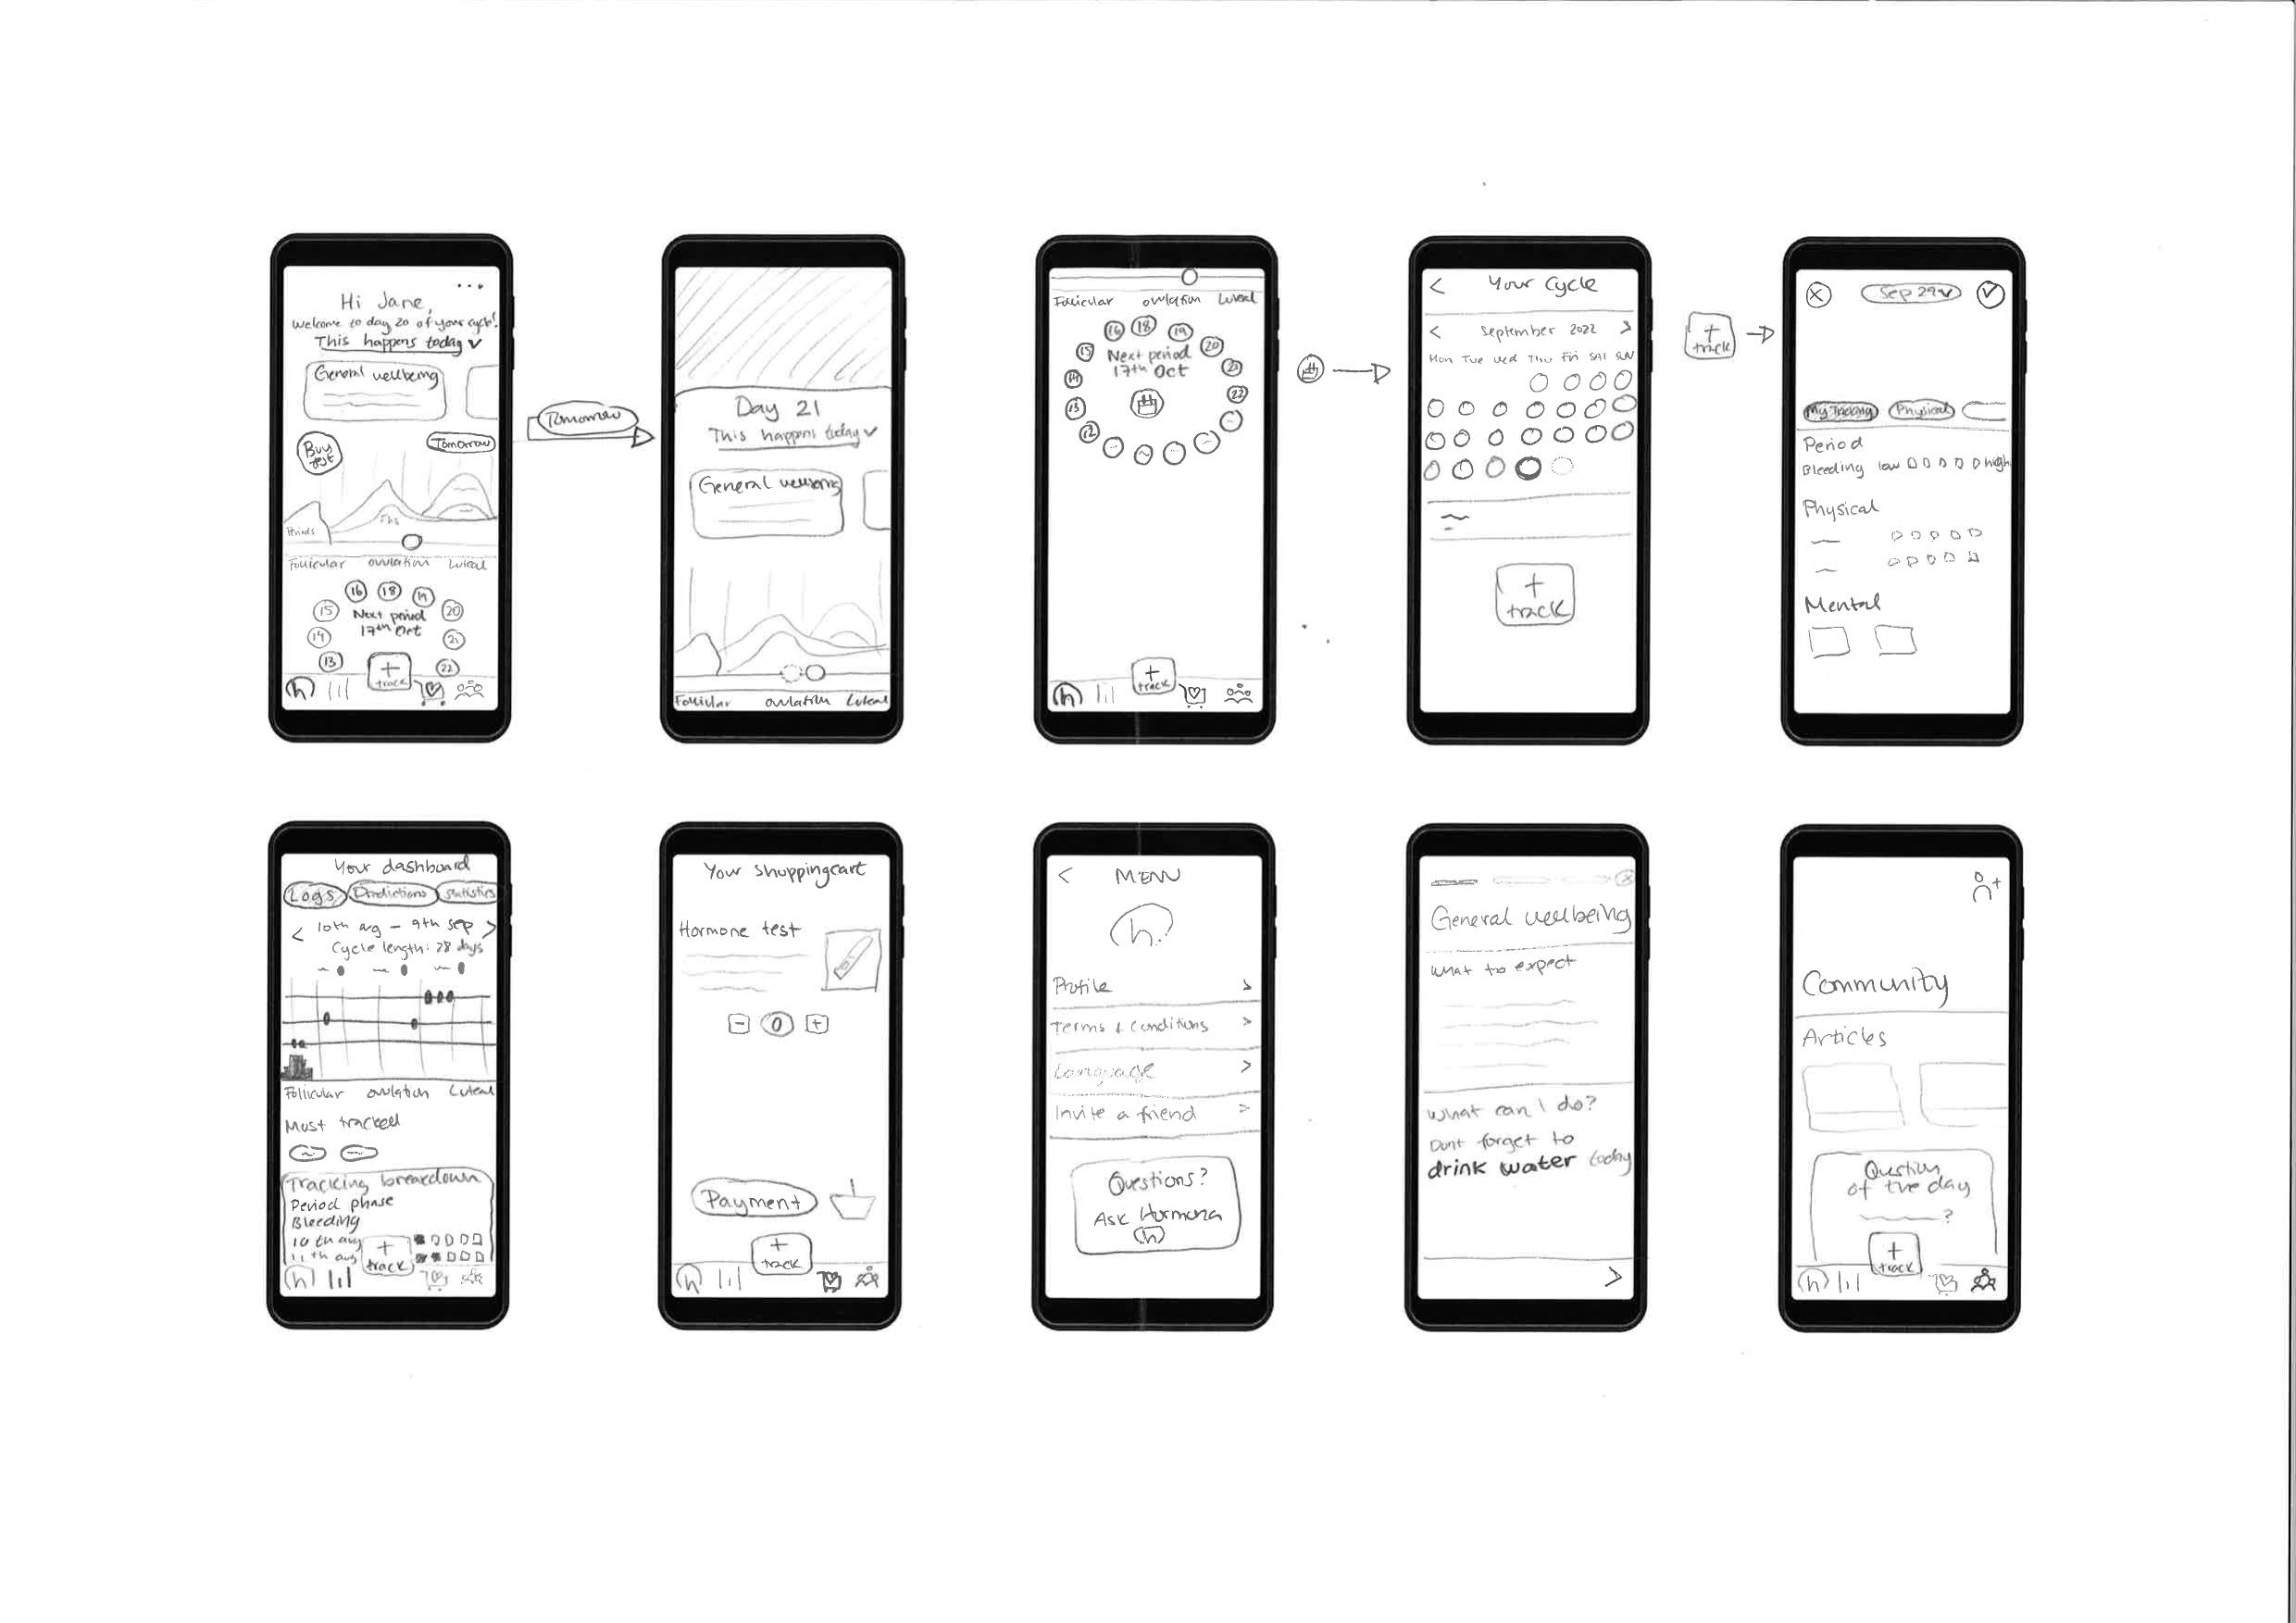 Hi Jane,
Welcome to day 20 of your cycle!
This happens today
General wellbeing
Buy test
Tomorrow
Periods
Follicular ovulation Luteal
16 18 19
15 Next period 20
14 17th Oct 21
13 22
+
track
h
Tomorrow
Day 21
This happens today
General wellbeing
Follicular ovulation Luteal
Follicular ovulation Luteal
16 18 19
15 Next period 20
14 17th Oct 21
13 22
12
+
track
h
< Your Cycle
< September 2022 >
Mon Tue Wed Thu Fri SAt SUN
+
track
+
track
X Sep 29
My Tracking Physical
Period
Bleeding low high
Physical
Mental
Your dashboard
Logs Predictions Statistics
< 10th aug - 9th sep >
Cycle length: 28 days
Follicular ovulation Luteal
Most tracked
Tracking breakdown
Period phase
Bleeding
10 th aug
11 th aug
+
track
h
Your shuppingcart
Hormone test
- 0 +
Payment
+
track
h
< MENU
h
Profile >
Terms & conditions >
Language >
Invite a friend >
Questions?
Ask Hormona
h
X
General wellbeing
What to expect
What can I do?
Dont forget to
drink water today
>
+
Community
Articles
Question
of the day
?
+
track
h